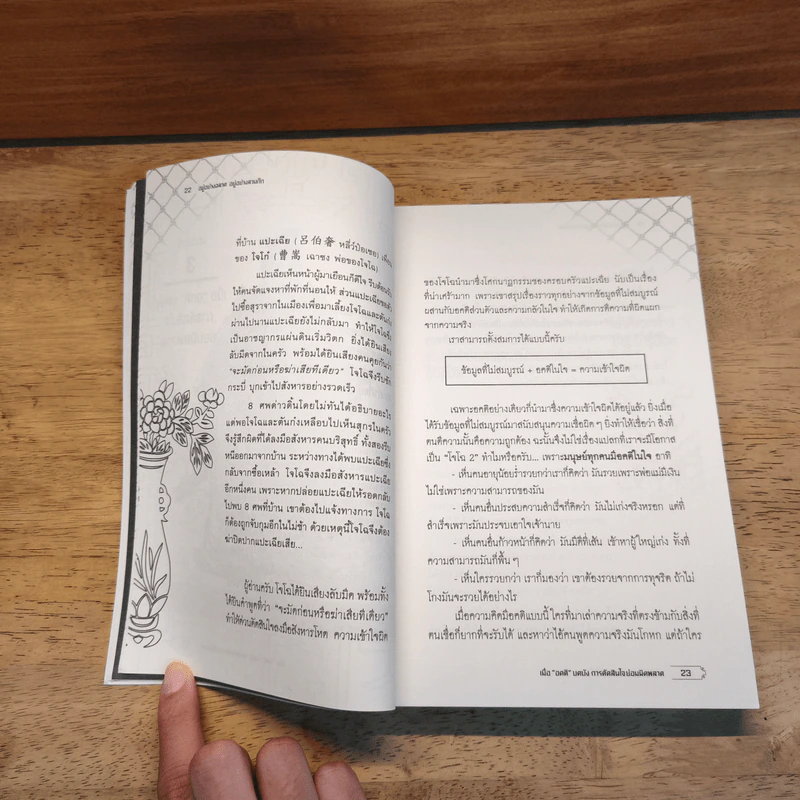 22 อยู่อย่างฉลาด อยู่อย่างสามก๊ก
ที่บ้าน แปะเฉีย (呂伯奢 หลี่ว์ป๋อเซอ)
ของ โจโก๋ (曹嵩 เฉาซง พ่อของโจโฉ)
แปะเฉียเห็นหน้าผู้มาเยือนก็ดีใจ
ให้คนจัดแจงหาที่พักที่นอนให้ ส่วนแปะเฉีย
ไปซื้อสุราจากในเมืองเพื่อมาเลี้ยงโจโฉและตันก๋ง
ผ่านไปนานแปะเฉียยังไม่กลับมา ทำให้โจโฉซึ่ง
เป็นอาชญากรแผ่นดินเริ่มวิตก ยิ่งได้ยินเสียง
ลับมีดจากในครัว พร้อมได้ยินเสียงคนคุยกันว่า
"จะมัดก่อนหรือฆ่าเสียทีเดียว" โจโฉจึงรีบชัก
กระบี่ บุกเข้าไปสังหารอย่างรวดเร็ว
8 ศพด่าวดิ้นโดยไม่ทันได้อธิบายอะไร
แต่พอโจโฉและตันก๋งเหลือบไปเห็นสุกรในครัว
จึงรู้สึกผิดที่ได้ลงมือสังหารคนบริสุทธิ์ ทั้งสองรีบ
หนีออกมาจากบ้าน ระหว่างทางได้พบแปะเฉียซึ่ง
กลับจากซื้อเหล้า โจโฉจึงลงมือสังหารแปะเฉีย
อีกหนึ่งคน เพราะหากปล่อยแปะเฉียให้รอดกลับ
ไปพบ 8 ศพที่บ้าน เขาต้องไปแจ้งทางการ โจโฉ
ก็ต้องถูกจับกุมอีกในไม่ช้า ด้วยเหตุนี้โจโฉจึงต้อง
ฆ่าปิดปากแปะเฉียเสีย...
ผู้อ่านครับ โจโฉได้ยินเสียงลับมีด พร้อมทั้ง
ได้ยินคำพูดที่ว่า "จะมัดก่อนหรือฆ่าเสียทีเดียว"
ทำให้ด่วนตัดสินใจลงมือสังหารโหด ความเข้าใจผิด
ของโจโฉนำมาซึ่งโศกนาฏกรรมของครอบครัวแปะเฉีย นับเป็นเรื่อง
ที่น่าเศร้ามาก เพราะเขาสรุปเรื่องราวทุกอย่างจากข้อมูลที่ไม่สมบูรณ์
ผสานกับอคติส่วนตัวและความกลัวในใจ ทำให้เกิดการตีความที่ผิดแผก
จากความจริง
เราสามารถตั้งสมการได้แบบนี้ครับ
ข้อมูลที่ไม่สมบูรณ์ + อคติในใจ = ความเข้าใจผิด
เฉพาะอคติอย่างเดียวก็นำมาซึ่งความเข้าใจผิดได้อยู่แล้ว ยิ่งเมื่อ
ได้รับข้อมูลที่ไม่สมบูรณ์มาสนับสนุนความเชื่อผิด ๆ ยิ่งทำให้เชื่อว่า สิ่งที่
ตนคิดความนั้นคือความถูกต้อง ฉะนั้นจึงไม่ใช่เรื่องแปลกที่เราจะมีโอกาส
เป็น "โจโฉ 2" ทำไมหรือครับ... เพราะมนุษย์ทุกคนมีอคติในใจ อาทิ
- เห็นคนอายุน้อยร่ำรวยกว่าเราก็คิดว่า มันรวยเพราะพ่อแม่มีเงิน
ไม่ใช่เพราะความสามารถของมัน
- เห็นคนอื่นประสบความสำเร็จก็คิดว่า มันไม่เก่งจริงหรอก แต่ที่
สำเร็จเพราะมันประจบเอาใจเจ้านาย
- เห็นคนอื่นก้าวหน้าก็คิดว่า มันมีตีที่เส้น เข้าหาผู้ใหญ่เก่ง ทั้งที่
ความสามารถมันก็พื้น ๆ
- เห็นใครรวยกว่า เราก็มองว่า เขาต้องรวยจากการทุจริต ถ้าไม่
โกงมันจะรวยได้อย่างไร
เมื่อความคิดมีอคติแบบนี้ ใครที่มาเล่าความจริงที่ตรงข้ามกับสิ่งที่
ตนเชื่อก็ยากที่จะรับได้ และหาว่าไอ้คนพูดความจริงมันโกหก แต่ถ้าใคร
เมื่อ "อคติ" บดบัง การตัดสินใจย่อมผิดพลาด 23